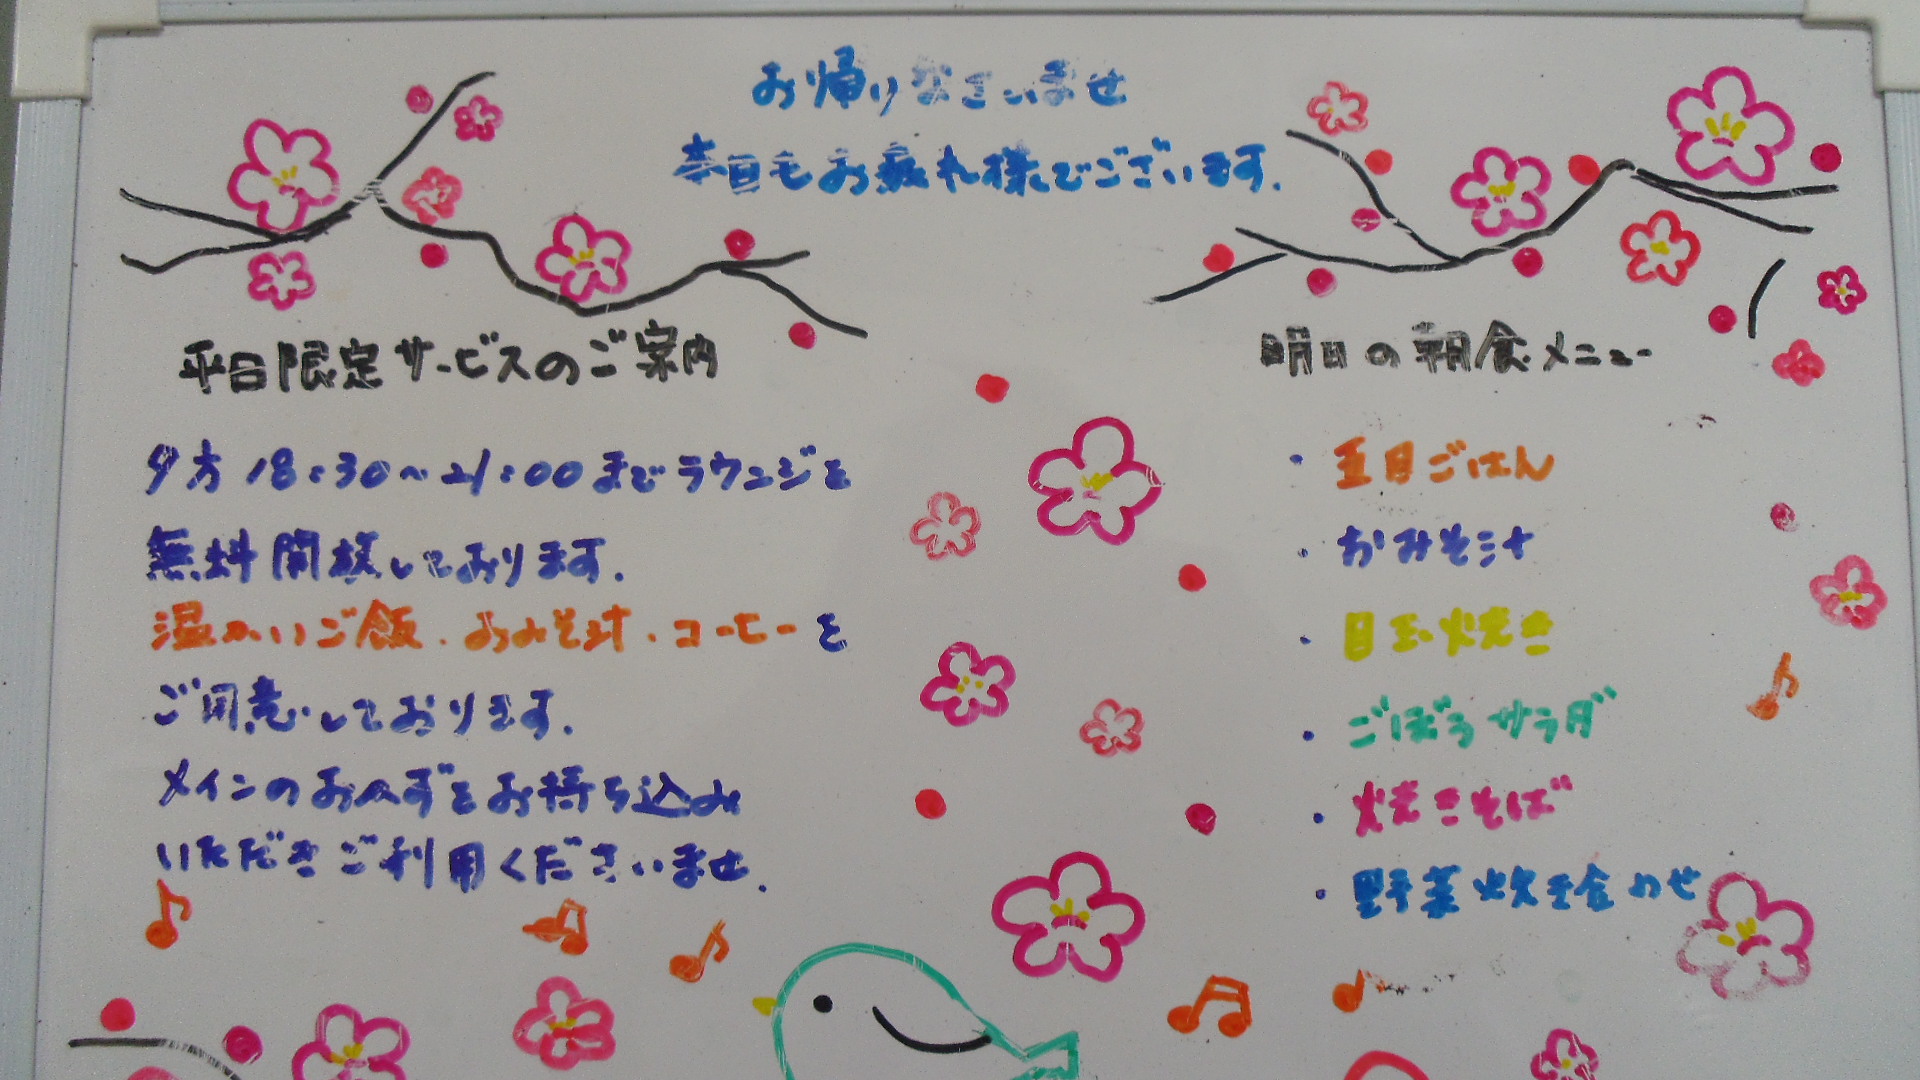 お帰りなさいませ
本日もお疲れ様でございます.
平日限定サービスのご案内
夕方 18:30〜21:00までラウンジを
無料開放しております.
温かいご飯・おみそ汁・コーヒーを
ご用意しております.
メインのおかずをお持ち込み
いただきご利用くださいませ.
明日の朝食メニュー
・五目ごはん
・おみそ汁
・目玉焼き
・ごぼうサラダ
・焼きそば
・野菜炊き合わせ